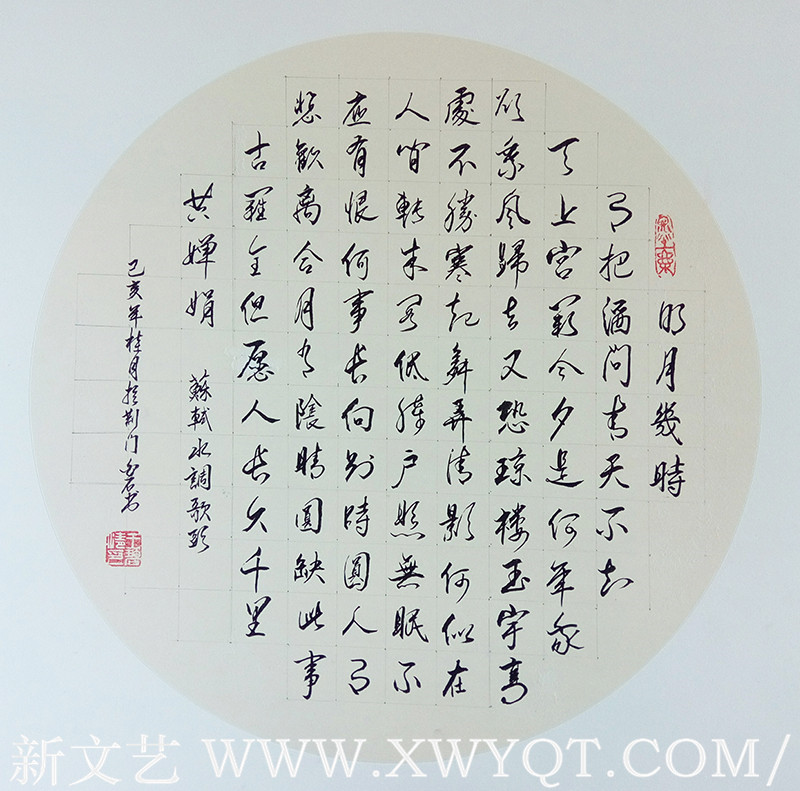 明月幾時
有把酒問青天不知
天上宮闕今夕是何年我
欲乘風歸去又恐琼楼玉宇高
處不勝寒起舞弄清影何似在
人間轉朱閣低綺户照無眠不
應有恨何事長向别時圓人有
悲歡離合月有陰晴圓缺此事
古難全但愿人長久千里
共嬋娟
蘇軾水調歌頭
己亥年桂月於荆门石书
新文艺 WWW.XWYQT.COM/